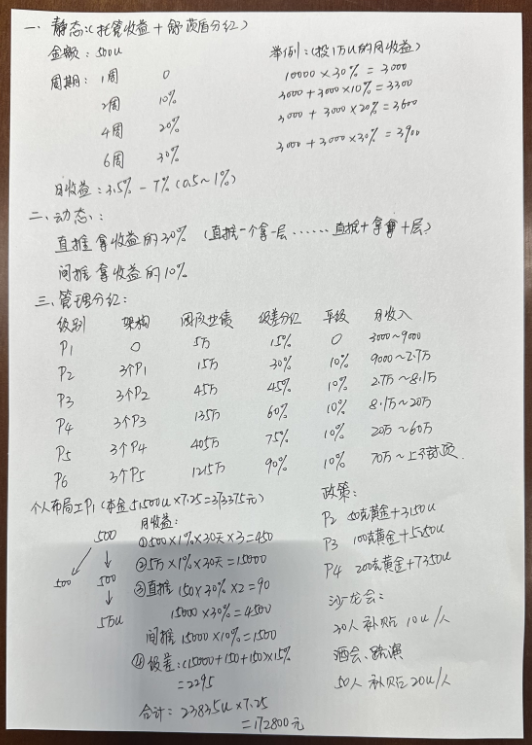 一、静态:(托管收益+舒颂盾分红)
金额:500u
周期:1周 0
2周 10%
4周 20%
6周 30%
日收益:3.5%-7%(0.5~1%)
举例:(投1万u的月收益)
10000×30%=3000
3000+3000×10%=3300
3000+3000×20%=3600
3000+3000×30%=3900
二、动态:
直推拿收益的30%(直推一个拿一层……直推十拿十层)
间推拿收益的10%
三、管理分红:
级别 架构 团队业绩 级差分红 平级 月收入
P1 0 5万 15% 0 3000~9000
P2 3个P1 15万 30% 10% 9000~2.7万
P3 3个P2 45万 45% 10% 2.7万~8.1万
P4 3个P3 135万 60% 10% 8.1万~20万
P5 3个P4 405万 75% 10% 20万~60万
P6 3个P5 1215万 90% 10% 70万~上不封顶.
个人布局工P1(本金51500u×7.25=373375元)
500
500 500
5万u
月收益:
①500×1%×30天×3=450
②5万×1%×30天=15000
③直推 150×30%×2=90
15000×30%=4500
间推 15000×10%=1500
④级差:(15000+150+150)×15%
=2295
合计:23835u×7.25
=172800元
政策:
P2 50克黄金+3150u
P3 100克黄金+5250u
P4 200克黄金+7350u
沙龙会:
30人 补贴 10u/人
酒会、路演
50人 补贴20u/人